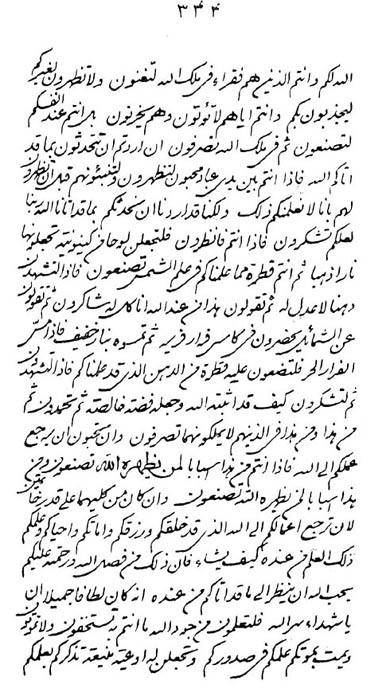 ٣٤٤
الله لكم وانتم الذينهم فقراء فى ملك الله تغنون ولا تظهرون لغيركم
ليجذبون بكم وانتم اياهم لا تؤتون وهم يحزنون بل انتم عند انفسكم
لتصنعون ثم فى ملك الله تصرفون ان اردتم ان تتحدثون بما قد
اتاكم الله فاذا انتم بين يدى عباد تحبون لتظهرون ولتنبئونهم قبل ان تظهرون
لهم بانا لا نعلمنكم ذلك ولكنا قد اردنا ان نحدثكم بما قد اتانا الله ربنا
لعلكم تشكرون فاذا انتم فانظرون فلتجعلن لوحا من كينونيته تجعلونها
نارا ذهبا ثم انتم قطرة مما علمناكم فى علم الشمس تصنعون فاذا لتشهدن
دهنا لا عدل له ثم تقولون هذا من عند الله انا كل له شاكرون ثم تقولون
عن الشمائل يحضرون فى كاس قرار فريه ثم تمسوه بنار خفيف فاذا مس
الفرار الحر فلتضعون عليه قطرة من الدهن الذى قد علمناكم فاذا لتشهدن
ثم لتشكرون كيف قد اثبته الله وجعله فضة خالصة ثم تحمدون ثم
من هذا ومن هذا فى الذينهم لا يملكونهما تصرفون وان تحبون ان يرجع
عملكم الى الله فاذا انتم من هذا اسبابا لمن يظهره الله تصنعون ومن
هذا اسبابا لمن يظهره الله تصنعون وان كان من كليهما على قدر خاتمين
لان ترجع اعمالكم الى الله الذى قد خلقكم ورزقكم واماتكم واحياكم وعلمكم
ذلك العلم من عنده كيف يشاء فان ذلك من فضل الله ورحمته عليكم
يحب الله ان ينظر الى ما قد اتاكم من عنده انه كان لطافا جميلا ان
يا شهداء سر الله فلتعلمون من جود الله ما انتم به تستحفون ولا تموتو
ويمت بموتكم علمكم فى صدوركم وتجعلن له اوعية منيعة تذكركم بعلمكم